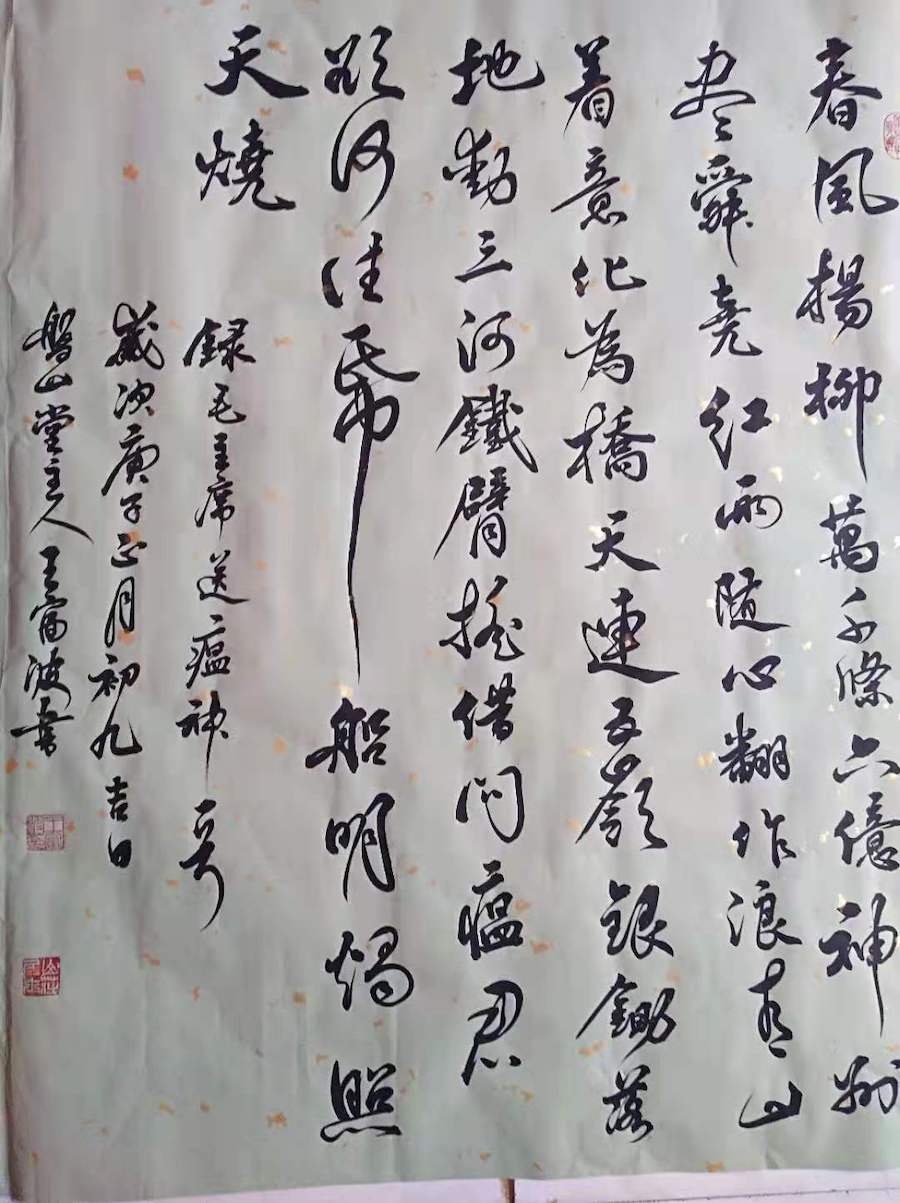 春風楊柳萬千條六億神州
盡舜堯紅雨随心翻作浪青山
着意化為橋天連五嶺銀鋤落
地動三河鐵臂摇借問瘟君
欲何往帋船明燭照
天燒
録毛主席送瘟神一首
歲次庚子正月初九吉日
盤山堂主人王富波書